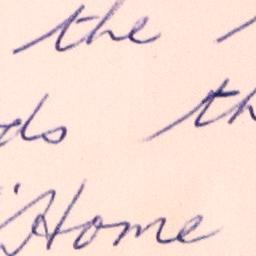 the
ds th
"Home